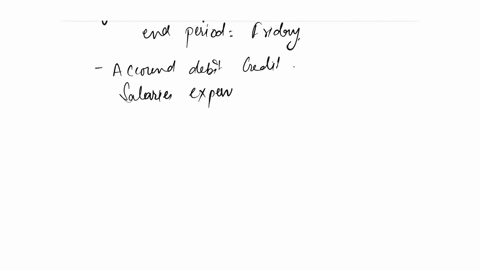 end period: Friday.
- Accound debit Credit.
Salaries expen